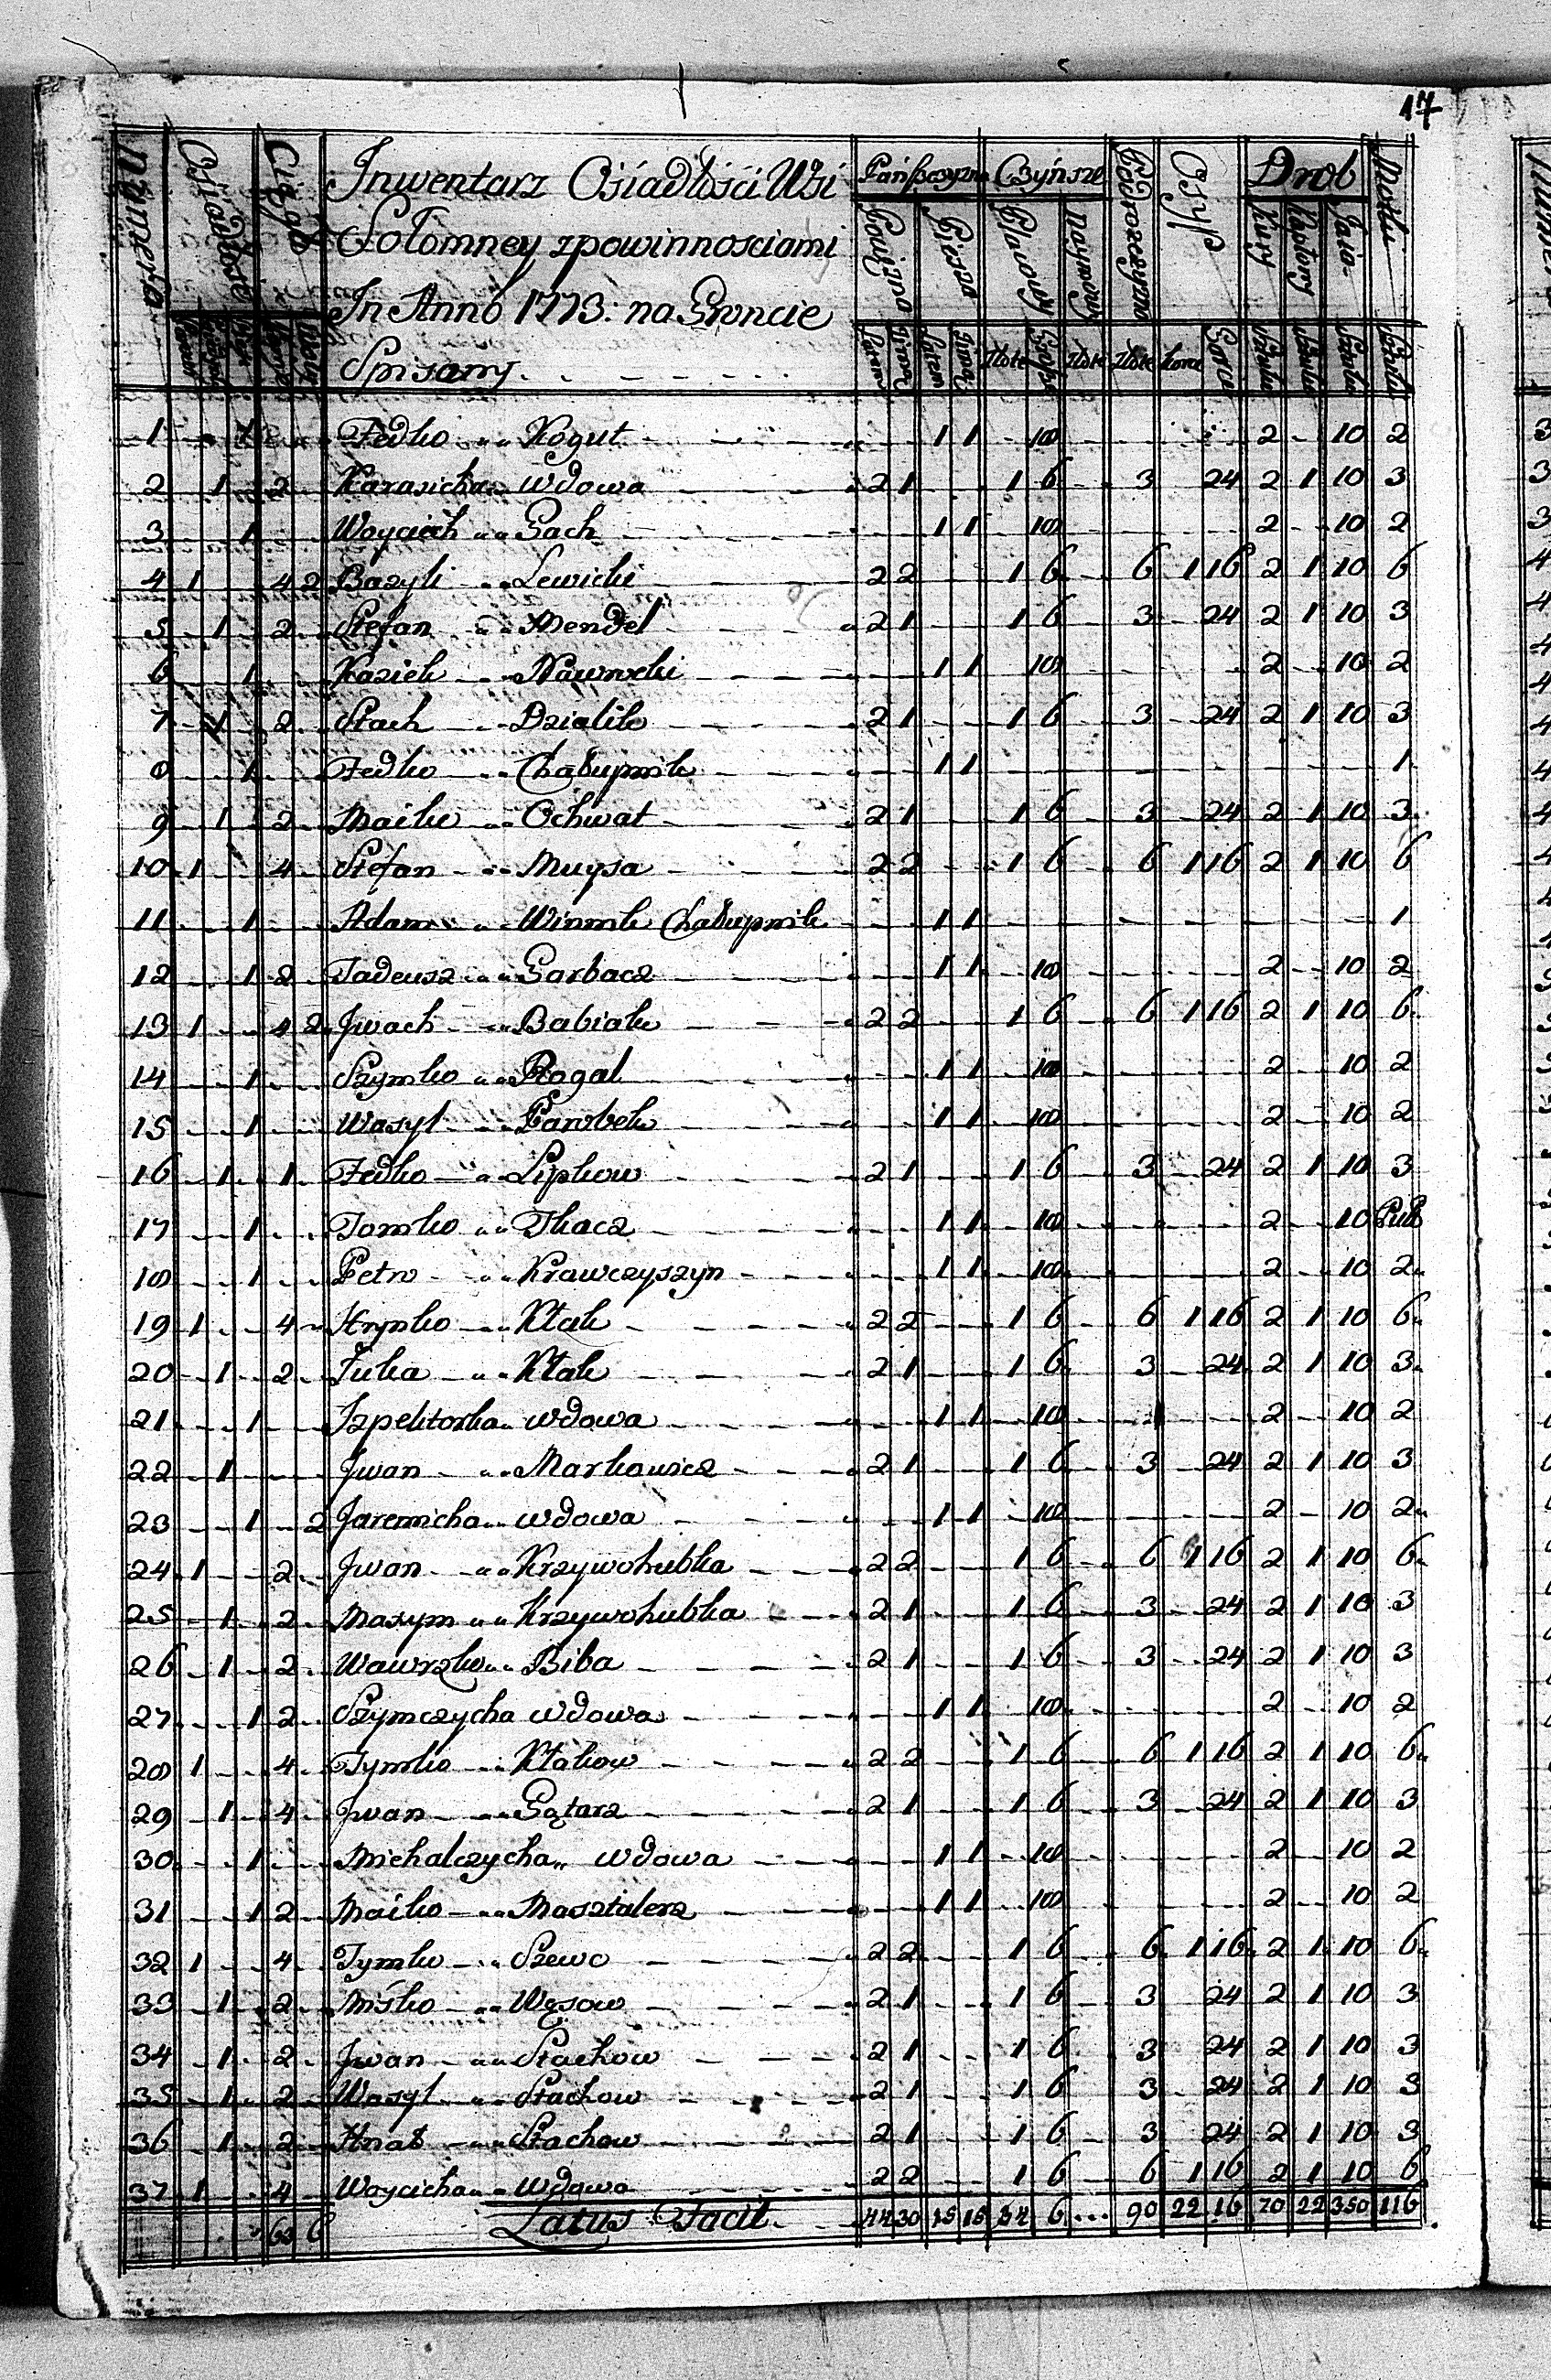 17
Numero
Osiadłość
Ciągło
Inwentarz Osiadłości Wsi
Sołomney z powinnosciami
In Anno 1773: na Gruncie
Spisany
Pańszczyzna Czyńsze Osyp Drob
Ciągła Piesza Kury Kapłony Jaia Motki
Latem Zimą Latem Zimą Złote Złote Złote Korce Garce Sztuki
1 1 Fedko Kogut 1 1 18 2 10 2
2 1 2 Karasicha wdowa 2 1 1 6 3 24 2 1 10 3
3 1 Woyciech Gach 1 1 18 2 10 2
4 1 4 2 Bazyli Lewicki 2 2 1 6 6 1 16 2 1 10 6
5 1 2 Stefan Mendel 2 1 1 6 3 24 2 1 10 3
6 1 Kaziek 1 1 18 2 10 2
7 1 2 Stach Dzialik 2 1 1 6 3 24 2 1 10 3
8 1 Fedko Chałupnik 1 1 1
9 1 2 Maiko Ochwat 2 1 1 6 3 24 2 1 10 3
10 1 4 Stefan Muysa 2 2 1 6 6 1 16 2 1 10 6
11 1 Adam Winnik Chałupnik 1 1 1
12 1 2 Tadeusz Garbacz 1 1 18 2 10 2
13 1 4 2 Jwach Babiak 2 2 1 6 6 1 16 2 1 10 6
14 1 Szymko Rogal 1 1 18 2 10 2
15 1 Wasyl 1 1 18 2 10 2
16 1 1 Fedko Lipkow 2 1 1 6 3 24 2 1 10 3
17 1 Tomko Tkacz 1 1 18 2 10
18 1 Petro Krawczyszyn 1 1 18 2 10 2
19 1 4 Hrynko Ktak 2 2 1 6 6 1 16 2 1 10 6
20 1 2 Juka Ktak 2 1 1 6 3 24 2 1 10 3
21 1 Izpektorka wdowa 1 1 18 2 10 2
22 1 Jwan Markowicz 2 1 1 6 3 24 2 1 10 3
23 1 2 Jaremicha wdowa 1 1 18 2 10 2
24 1 2 Jwan Krzywohubka 2 2 1 6 6 1 16 2 1 10 6
25 1 2 Maxym Krzywohubka 2 1 1 6 3 24 2 1 10 3
26 1 2 Wawrzko Biba 2 1 1 6 3 24 2 1 10 3
27 1 2 Szymczycha wdowa 1 1 18 2 10 2
28 1 4 Tymko Ktakow 2 2 1 6 6 1 16 2 1 10 6
29 1 4 Jwan Gętarz 2 1 1 6 3 24 2 1 10 3
30 1 Michalczycha wdowa 1 1 18 2 10 2
31 1 2 Maiko Masztalerz 1 1 18 2 10 2
32 1 4 Tymko Szewc 2 2 1 6 6 1 16 2 1 10 6
33 1 2 Misko Węsow 2 1 1 6 3 24 2 1 10 3
34 1 2 Jwan Stachow 2 1 1 6 3 24 2 1 10 3
35 1 2 Wasyl Stachow 2 1 1 6 3 24 2 1 10 3
36 1 2 Hnat Stachow 2 1 1 6 3 24 2 1 10 3
37 1 4 Woycicha wdowa 2 2 1 6 6 1 16 2 1 10 6
63 6 Latus Facit 44 30 15 15 34 6 90 22 16 70 22 350 116